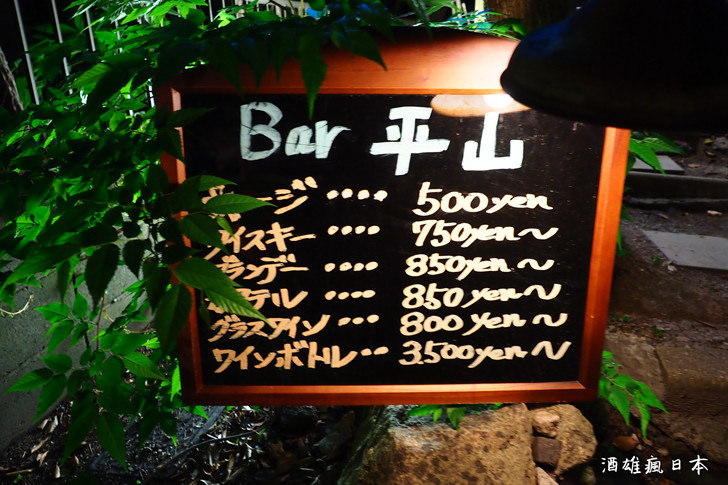 Bar 平山
ージ •••• 500yen
イスキー •••• 750yen〜
ランデー •••• 850yen〜
テル •••• 850yen〜
グラスワイン •••• 800yen〜
ワインボトル •• 3.500yen〜
酒雄瘋日本